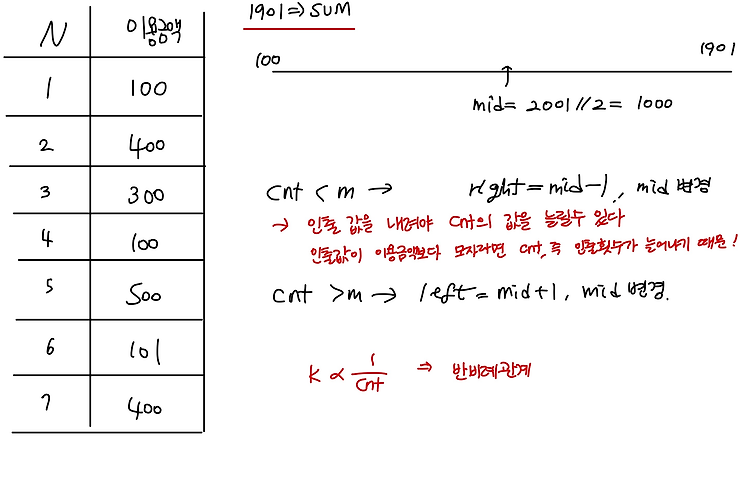 N 이용금액
1 100
2 400
3 300
4 100
5 500
6 101
7 400
1901 => SUM
100 1901
mid = 2001 // 2 = 1000
cnt < m → right = mid-1, mid 변경
→ 인출 값을 내려야 cnt의 값을 늘릴수 있다
인출값이 이용금액보다 모자라면 cnt, 즉 인출횟수가 늘어나기 때문!
cnt > m → left = mid+1, mid 변경.
K ∝ 1/cnt ⇒ 반비례관계